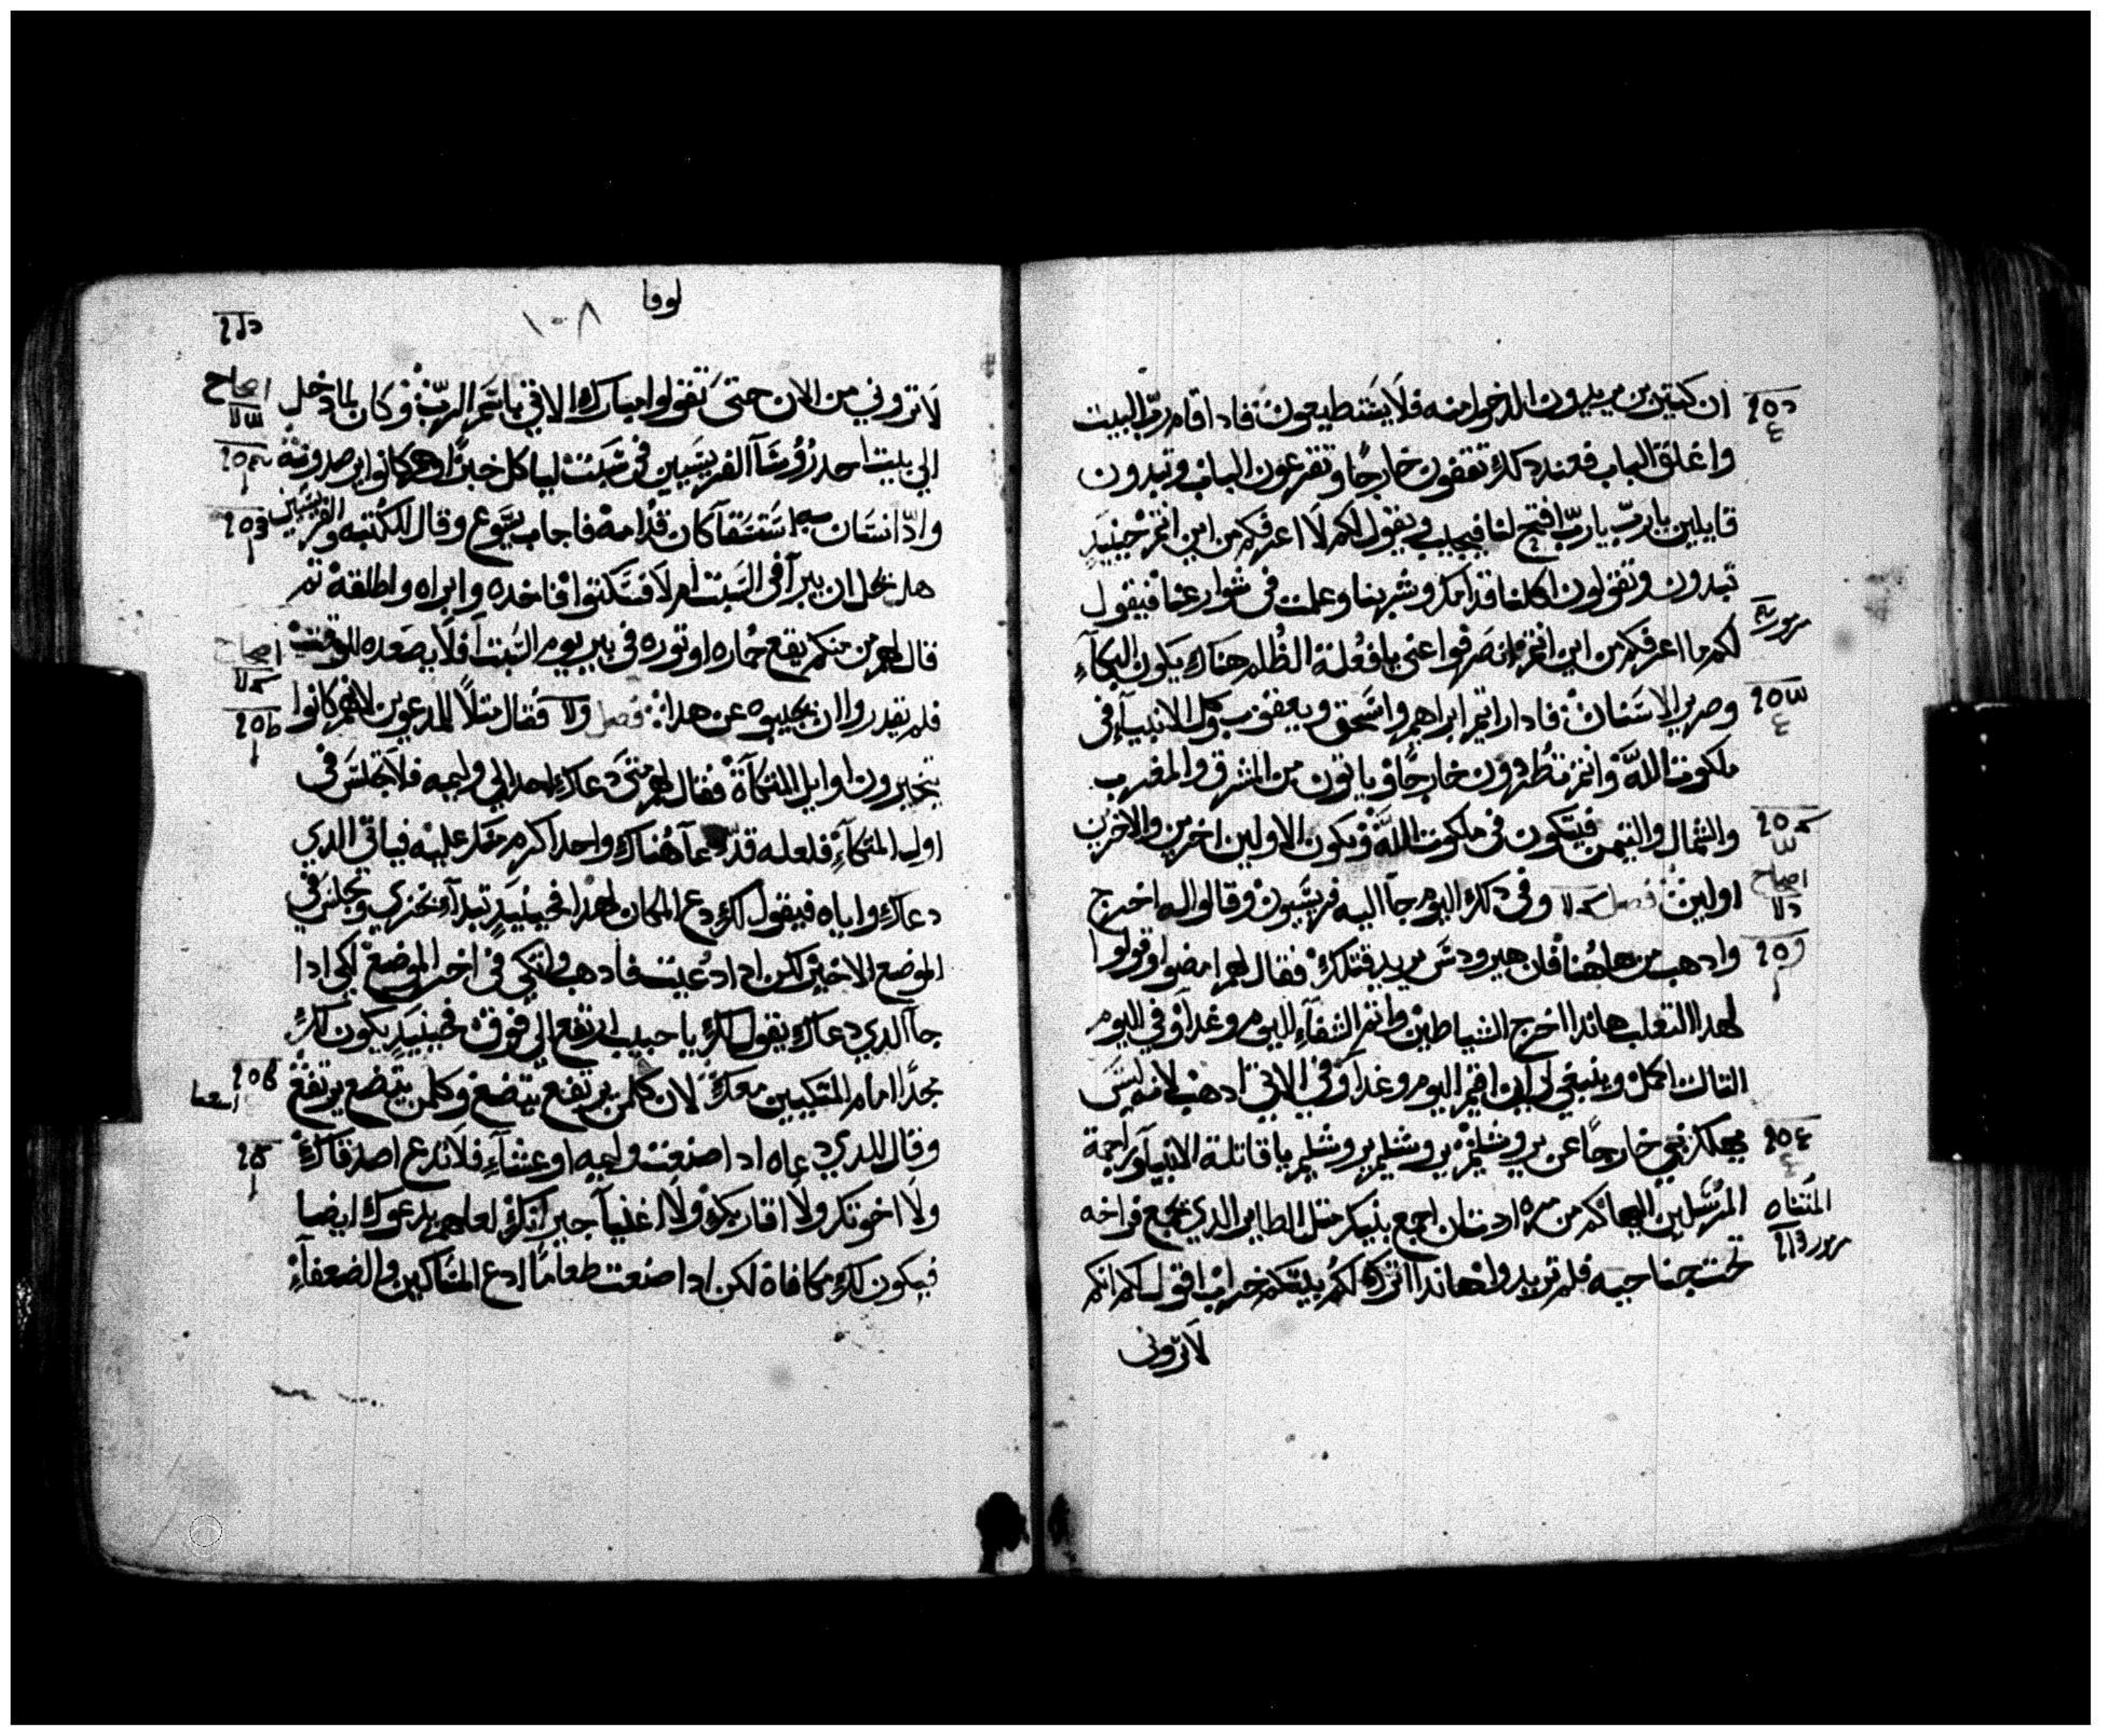 ان كتيرين يريدون الدخول منه فلا يستطيعون فادا قام ربّ البيت
واغلق الباب فعند دلك تقفون خارجًا وتقرعون الباب وتبدون
قايلين يارب يارب افتح لنا فيجيب ويقول لكم لا اعرفكم من اين انتم حينيدٍ
تبدون وتقولون اكلنا قدامك وشربنا وعلمت في شوارعنا فيقول
لكم ما اعرفكم من اين انتم انصرفوا عني يا فعلة الظلم هناك يكون البكآء
وصرير الاسنان فادا رايتم ابراهيم واسحق ويعقوب وكل الانبيآء في
ملكوت الله وانتم تطردون خارجًا وياتون من المشرق والمغرب
والشمال واليتمن فيتكون في ملكوت الله ويكون الاولين اخرين والاخرين
اولين فصل وفي دلك اليوم جآ اليه فريسيون وقالوا له اخرج
وادهب من هاهنا فان هيرودس يريد قتلك فقال لهم امضوا وقولوا
لهدا التعلب هاندا اخرج الشياطين واتم الشفآء اليوم وغدًا وفي اليوم
التالت اكمل وينبغي لي ان اقيم اليوم وغدًا وفي الاتي ادهب لانه ليس
يهلك نبي خارجًا عن يروشليم يروشليم يروشليم يا قاتلة الانبيآ وراجمة
المرسلين اليها كم من مره اردت ان اجمع بنيك متل الطاير الدي يجمع فراخه
تحت جناحيه فلم تريدوا هاندا اترك لكم بيتكم خراب اقول لكم انكم
لا تروني
لوقا
١٠٨
لا تروني من الان حتى تقولوا مبارك الاتي باسم الرب وكان لما دخل
الي بيت احد رؤسآ الفريسيين في سبت لياكل خبزًا وهم كانوا يرصدونه
وادا انسان به استسقآ كان قدامه فاجاب يسوع وقال للكتبه والفريسيين
هل يحل ان يبرآ في السبت ام لا فسكتوا فاخده وابراه واطلقه تم
قال لهم من منكم يقع حماره او توره في بير يوم السبت افلا يصعده للوقت
فلم يقدروا ان يجيبوه عن هدا فصل فقال متلًا للمدعوين لانهم كانوا
يتخيرون اوايل المتكآة فقال لهم متى دعاك احد الي وليمه فلا تجلس في
اول المتكآء فلعله قد دعآ هناك واحد اكرم منك عليه فياتي الدي
دعاك واياه فيقول لك دع المكان لهدا فحينيدٍ تبدآ وتخزي وتجلس في
الموضع الاخير لكن ادا دعيت فادهب واتكي في اخر الموضع لكي ادا
جآ الدي دعاك يقول لك يا حبيب ارتفع الي فوق فحينيدٍ يكون لك
مجدًا امام المتكيين معك لان كلمن يرتفع يتضع وكلمن يتضع يرتفع
وقال للدي دعاه ادا صنعت وليمه او عشآء فلا تدع اصدقاك
ولا اخوتك ولا اقاربك ولا اغنيآ جيرانك لعلهم يدعوك ايضا
فيكون لك مكافاة لكن ادا صنعت طعامًا ادع المساكين والضعفآء